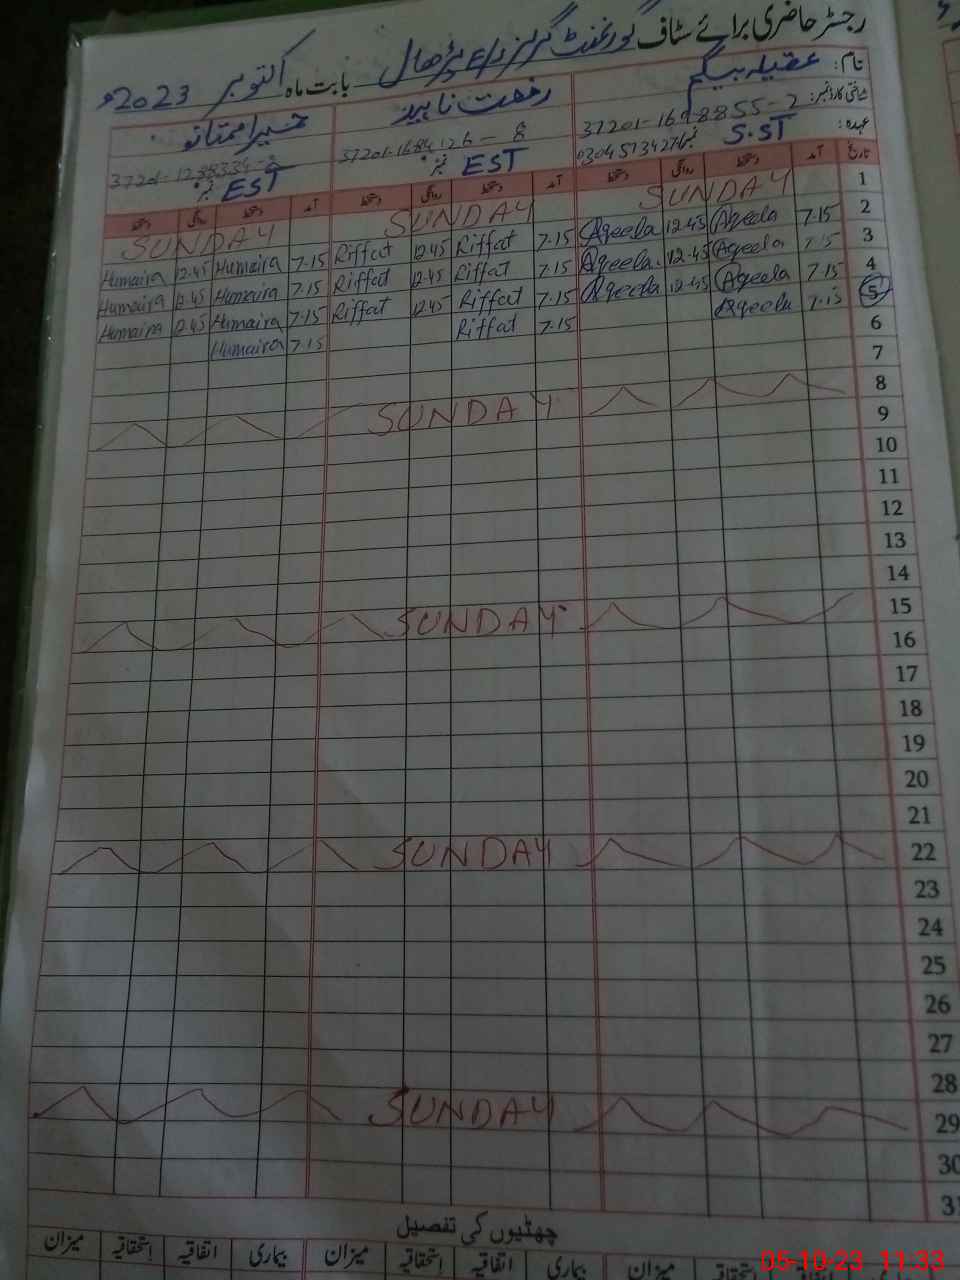 رجسٹر حاضری برائے سٹاف گورنمنٹ گرلز بابت ماہ اکتوبر 2023ء
نام: عقیلہ بیگم رفعت ناہید حمیرا ممتاز
شناختی کارڈ نمبر: 37201-1698855-2 37201-1684126-8
عہدہ: S.ST نمبر 03045734276 EST نمبر EST نمبر
تاریخ آمد دستخط روانگی دستخط آمد دستخط روانگی دستخط آمد دستخط روانگی دستخط
1 SUNDAY SUNDAY SUNDAY
2 7.15 Aqeela 12.45 Aqeela 7.15 Riffat 12.45 Riffat 7.15 Humaira 12.45 Humaira
3 7.15 Aqeela 12.45 Aqeela 7.15 Riffat 12.45 Riffat 7.15 Humaira 12.45 Humaira
4 7.15 Aqeela 12.45 Aqeela 7.15 Riffat 12.45 Riffat 7.15 Humaira 12.45 Humaira
5 7.15 Aqeela 7.15 Riffat 7.15 Humaira
6
7
8 SUNDAY
9
10
11
12
13
14
15 SUNDAY
16
17
18
19
20
21
22 SUNDAY
23
24
25
26
27
28
29 SUNDAY
30
31
چھٹیوں کی تفصیل
میزان بیماری اتفاقیہ استحقاقیہ میزان بیماری اتفاقیہ استحقاقیہ میزان
05-10-23 11:33